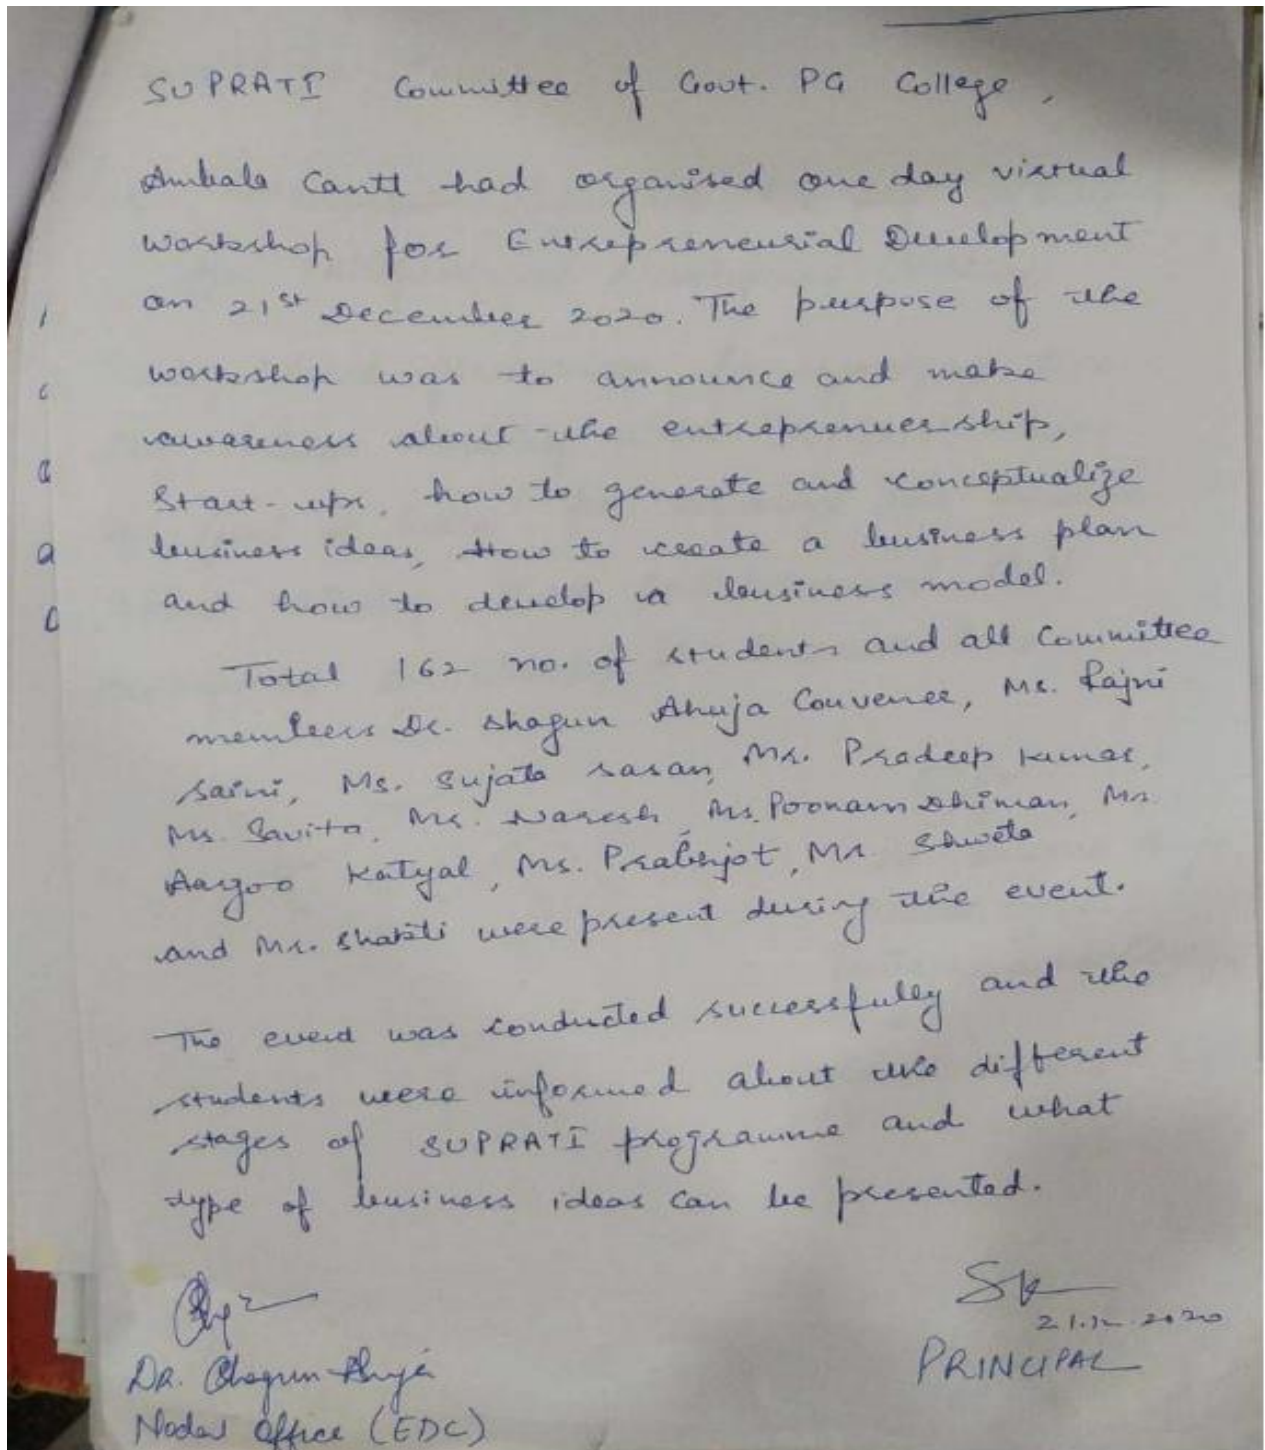 SUPRATI Committee of Govt. PG College,
Ambala Cantt had organised one day virtual
workshop for Entrepreneurial Development
on 21st December 2020. The purpose of the
workshop was to announce and make
awareness about the entreprenuership,
Start-ups, how to generate and conceptualize
business ideas, How to create a business plan
and how to develop a business model.
Total 162 no. of students and all Committee
members Dr. Shagun Ahuja Convener, Ms. Rajni
Saini, Ms. Sujata Sasan, Mr. Pradeep Kumar,
Ms. Savita, Mr. Naresh, Ms. Poonam Dhiman, Ms.
Aarzoo Katyal, Ms. Prabhjot, Ms. Shweta
and Ms. Shakti were present during the event.
The event was conducted successfully and the
students were informed about the different
stages of SUPRATI programme and what
type of business ideas can be presented.
21.12.2020
PRINCIPAL
Dr. Shagun Ahuja
Nodal Office (EDC)